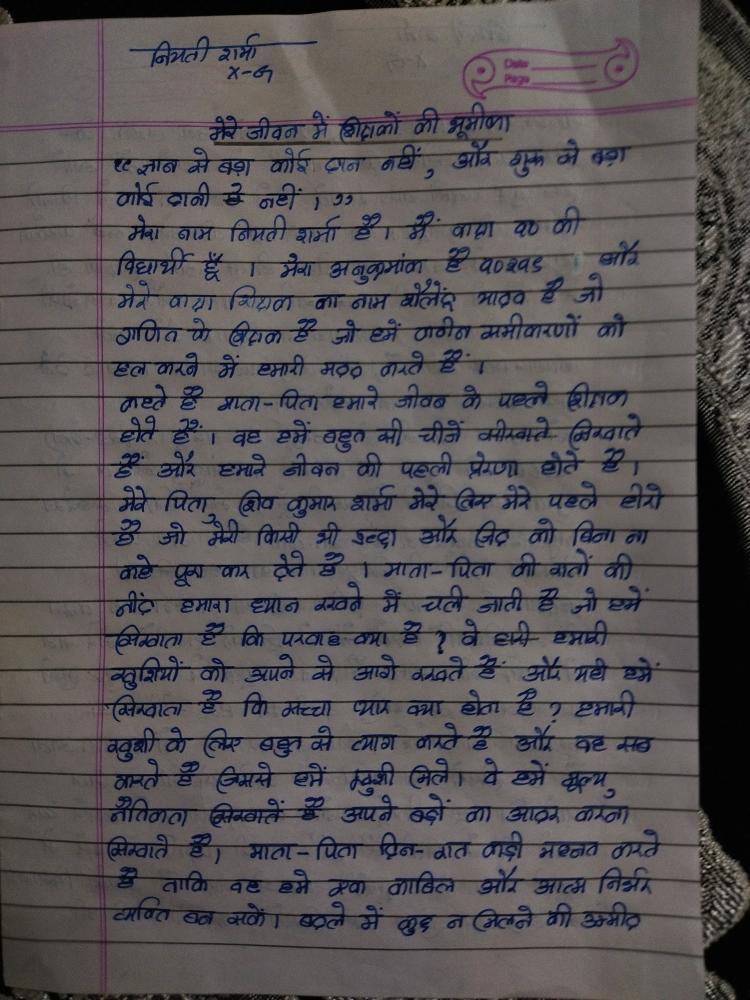 नियती शर्मा
X-G
Date
Page
मेरे जीवन में शिक्षकों की भूमीका
“ज्ञान से बड़ा कोई दान नहीं, और गुरू से बड़ा
कोई दानी है नहीं।”
मेरा नाम नियती शर्मा है। मैं कक्षा १० की
विद्यार्थी हूँ। मेरा अनुक्रमांक है और
मेरे कक्षा शिक्षक का नाम शैलेंद्र यादव है जो
गणित के शिक्षक है जो हमें कठीन समीकरणों को
हल करने में हमारी मदद करते हैं।
कहते हैं माता-पिता हमारे जीवन के पहले शिक्षक
होते हैं। वह हमें बहुत सी चीजें सीखाते सिखाते
हैं और हमारे जीवन की पहली प्रेरणा होते है।
मेरे पिता, शिव कुमार शर्मा मेरे लिए मेरे पहले हीरो
है जो मेरी किसी भी इच्छा और जिद को बिना ना
कहे पूरा कर देते है। माता-पिता की रातों की
नींद हमारा ध्यान रखने में चली जाती है जो हमें
सिखाता है कि परवाह क्या है? वे हमारी
खुशियों को अपने से आगे रखते हैं और यही हमें
सिखाता है कि सच्चा प्यार क्या होता है? हमारी
खुशी के लिए बहुत से त्याग करते है और वह सब
करते है जिससे हमें खुशी मिले। वे हमें मूल्य,
नैतिकता सिखातें है अपने बड़ों का आदर करना
सिखाते है। माता-पिता दिन-रात कड़ी महनत करते
है ताकि वह हमे एक काबिल और आत्म निर्भर
व्यक्ति बन सकें। बदले में कुछ न मिलने की उम्मीद